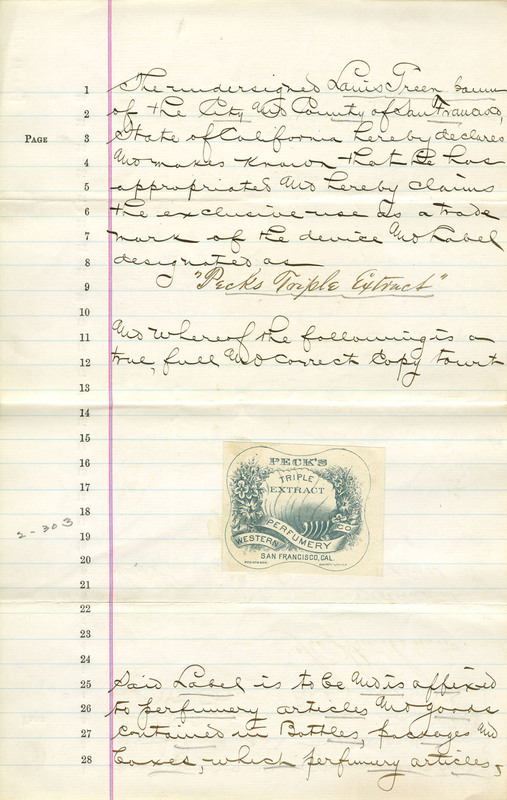 PAGE
1 The undersigned Louis Green
2 of the City and County of San Francisco,
3 State of California hereby declares
4 and makes known that he has
5 appropriated and hereby claims
6 the exclusive use as a trade
7 mark of the device and Label
8 designated as
9 "Pecks Triple Extract"
10
11 and whereof the following is a
12 true, full and correct Copy towit
13
14
15
16
17
18
19
20
21
22
23
24
2-303
PECK'S
TRIPLE
EXTRACT
WESTERN PERFUMERY CO
SAN FRANCISCO, CAL.
25 Said Label is to be and is affixed
26 to perfumery articles and goods
27 contained in Bottles, packages and
28 boxes, which perfumery articles,